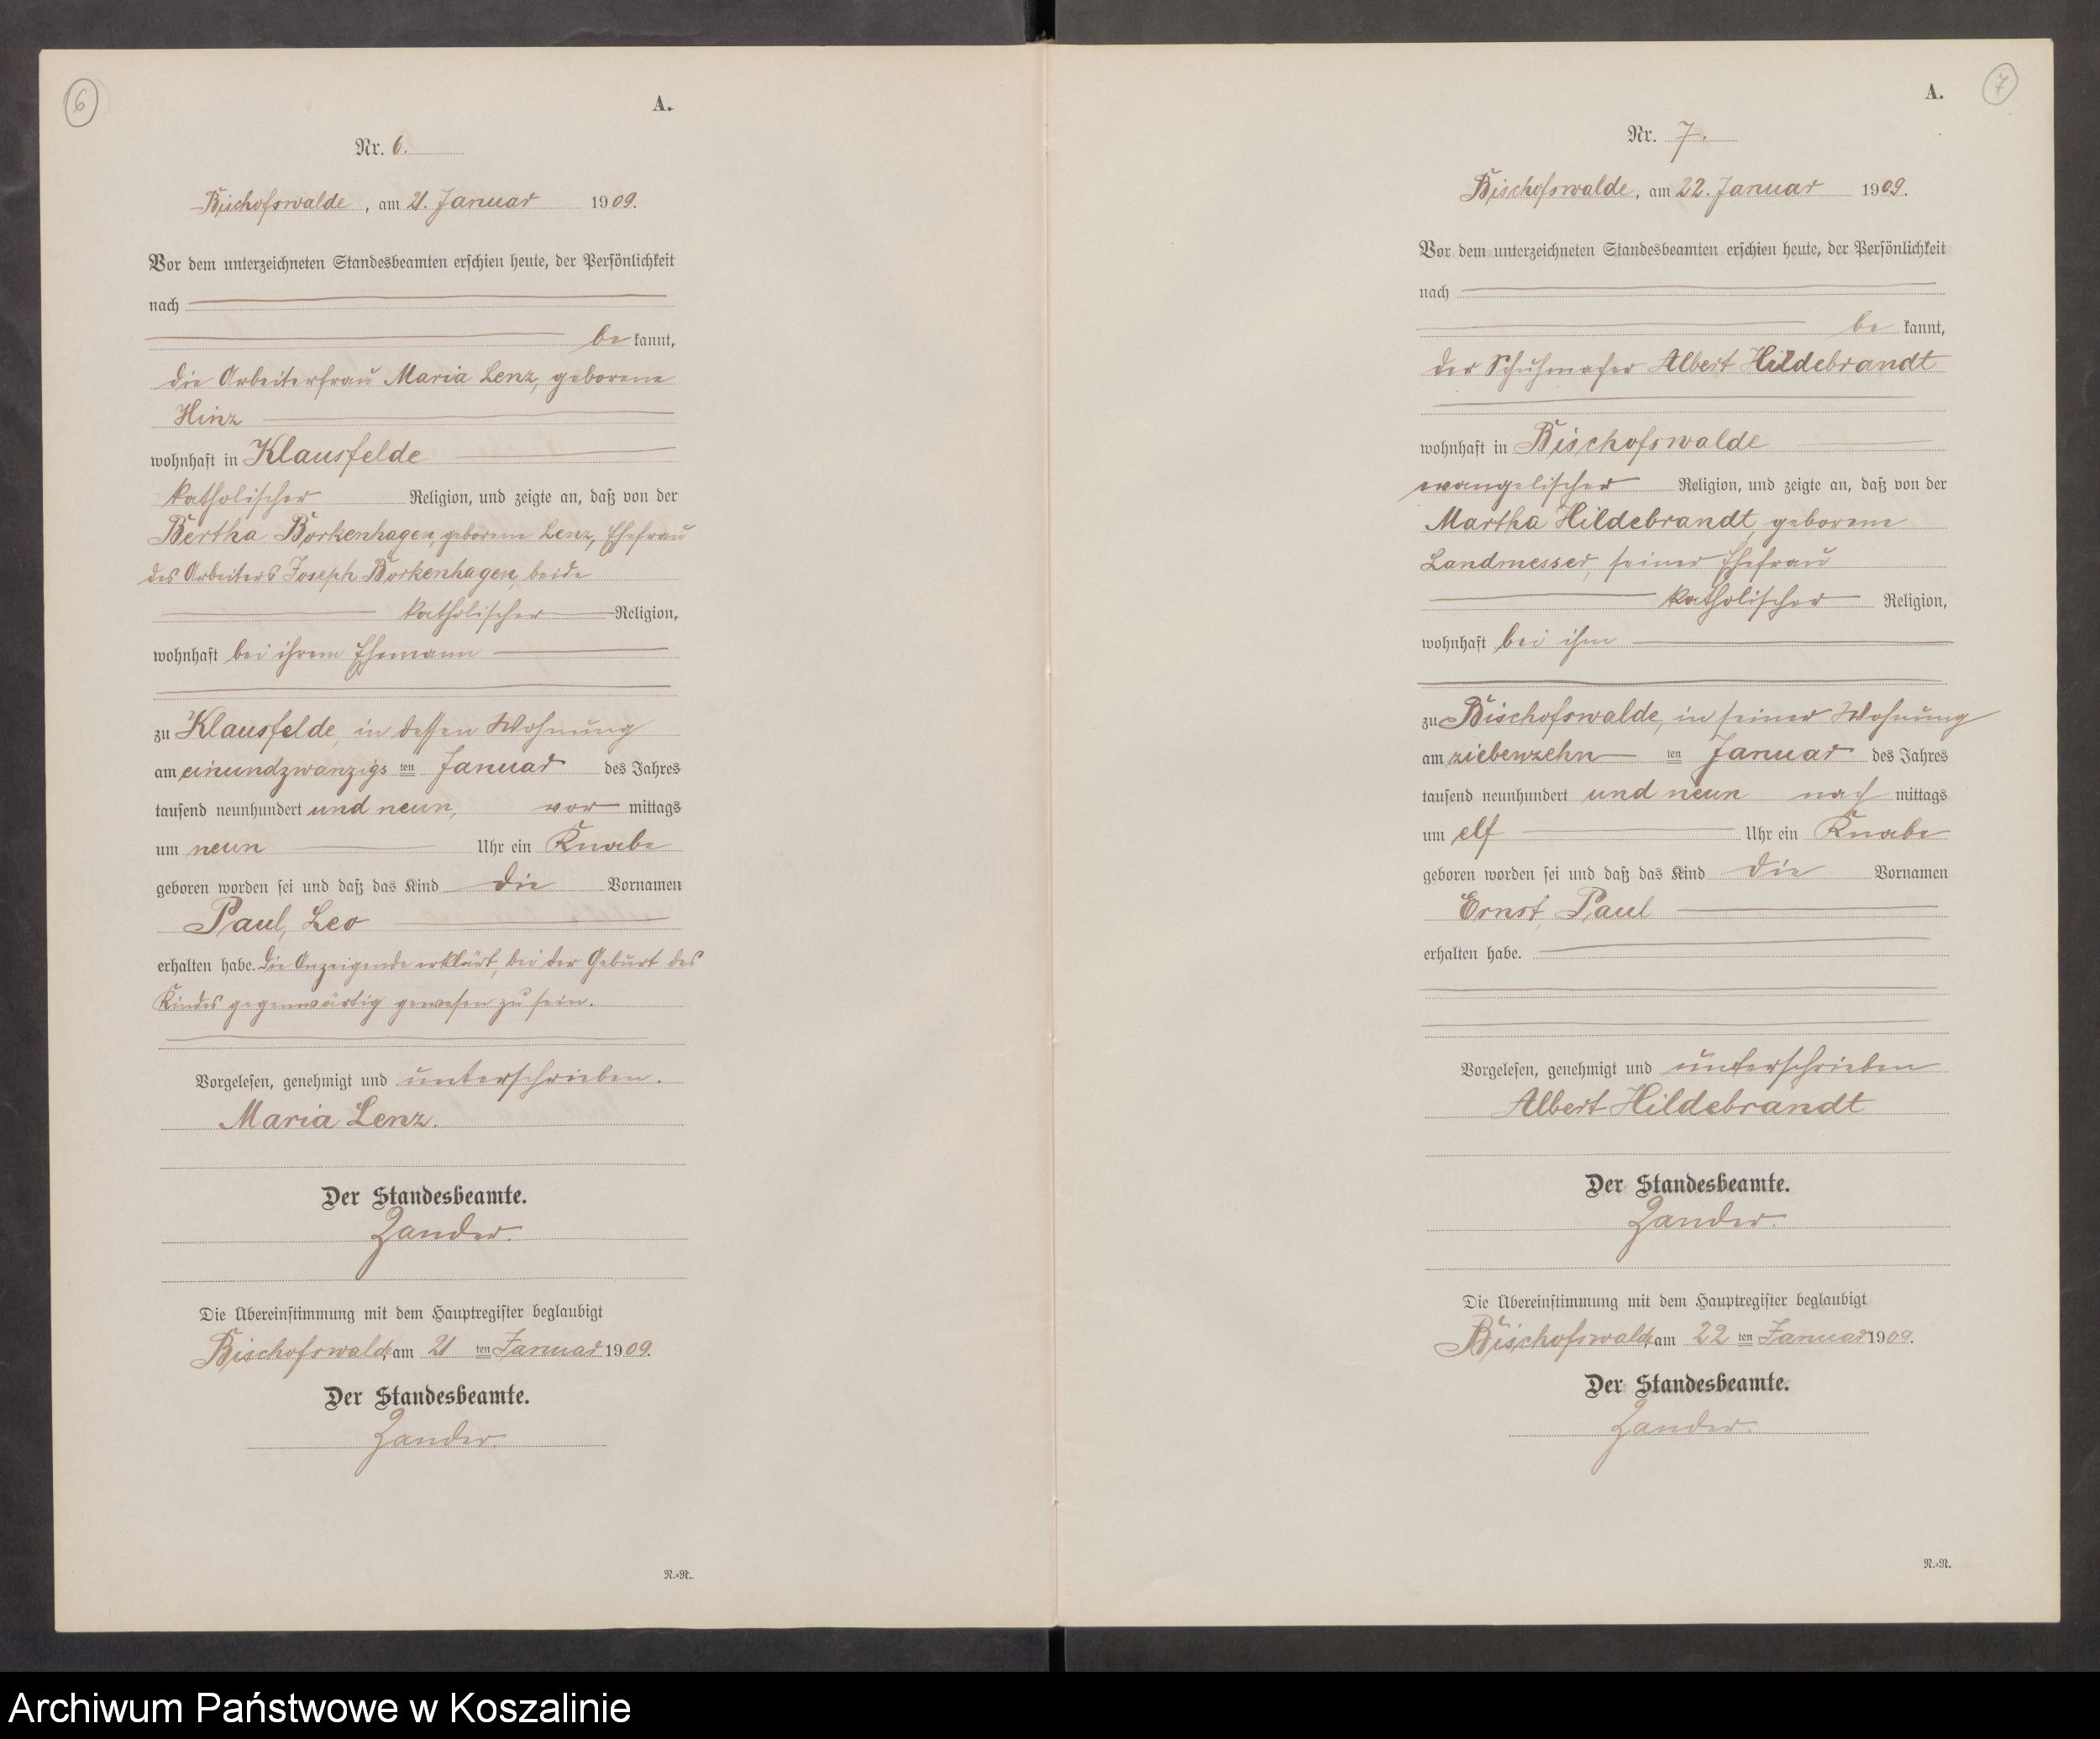 6
A.
Nr. 6.
Bischofswalde, am 21. Januar 1909.
Vor dem unterzeichneten Standesbeamten erschien heute, der Persönlichkeit
nach
be kannt,
die Arbeiterfrau Maria Lenz, geborene
Hinz
wohnhaft in Klausfelde
katholischer Religion, und zeigte an, daß von der
Bertha Borkenhagen, geborene Lenz, Ehefrau
des Arbeiters Joseph Borkenhagen, beide
katholischer Religion,
wohnhaft bei ihrem Ehemann
zu Klausfelde, in dessen Wohnung
am einundzwanzigs ten Januar des Jahres
tausend neunhundert und neun, vor mittags
um neun Uhr ein Knabe
geboren worden sei und daß das Kind die Vornamen
Paul, Leo
erhalten habe. Die Anzeigende erklärt, bei der Geburt des
Kindes gegenwärtig gewesen zu sein.
Vorgelesen, genehmigt und unterschrieben.
Maria Lenz.
Der Standesbeamte.
Zander.
Die Übereinstimmung mit dem Hauptregister beglaubigt
Bischofswalde, am 21 ten Januar 1909.
Der Standesbeamte.
Zander.
N.=R.
7
A.
Nr. 7.
Bischofswalde, am 22. Januar 1909.
Vor dem unterzeichneten Standesbeamten erschien heute, der Persönlichkeit
nach
be kannt,
der Schuhmacher Albert Hildebrandt
wohnhaft in Bischofswalde
evangelischer Religion, und zeigte an, daß von der
Martha Hildebrandt, geborene
Landmesser, seiner Ehefrau
katholischer Religion,
wohnhaft bei ihm
zu Bischofswalde, in seiner Wohnung
am ziebenzehn ten Januar des Jahres
tausend neunhundert und neun nach mittags
um elf Uhr ein Knabe
geboren worden sei und daß das Kind die Vornamen
Ernst, Paul
erhalten habe.
Vorgelesen, genehmigt und unterschrieben
Albert Hildebrandt
Der Standesbeamte.
Zander.
Die Übereinstimmung mit dem Hauptregister beglaubigt
Bischofswalde, am 22 ten Januar 1909.
Der Standesbeamte.
Zander.
N.=R.
Archiwum Państwowe w Koszalinie